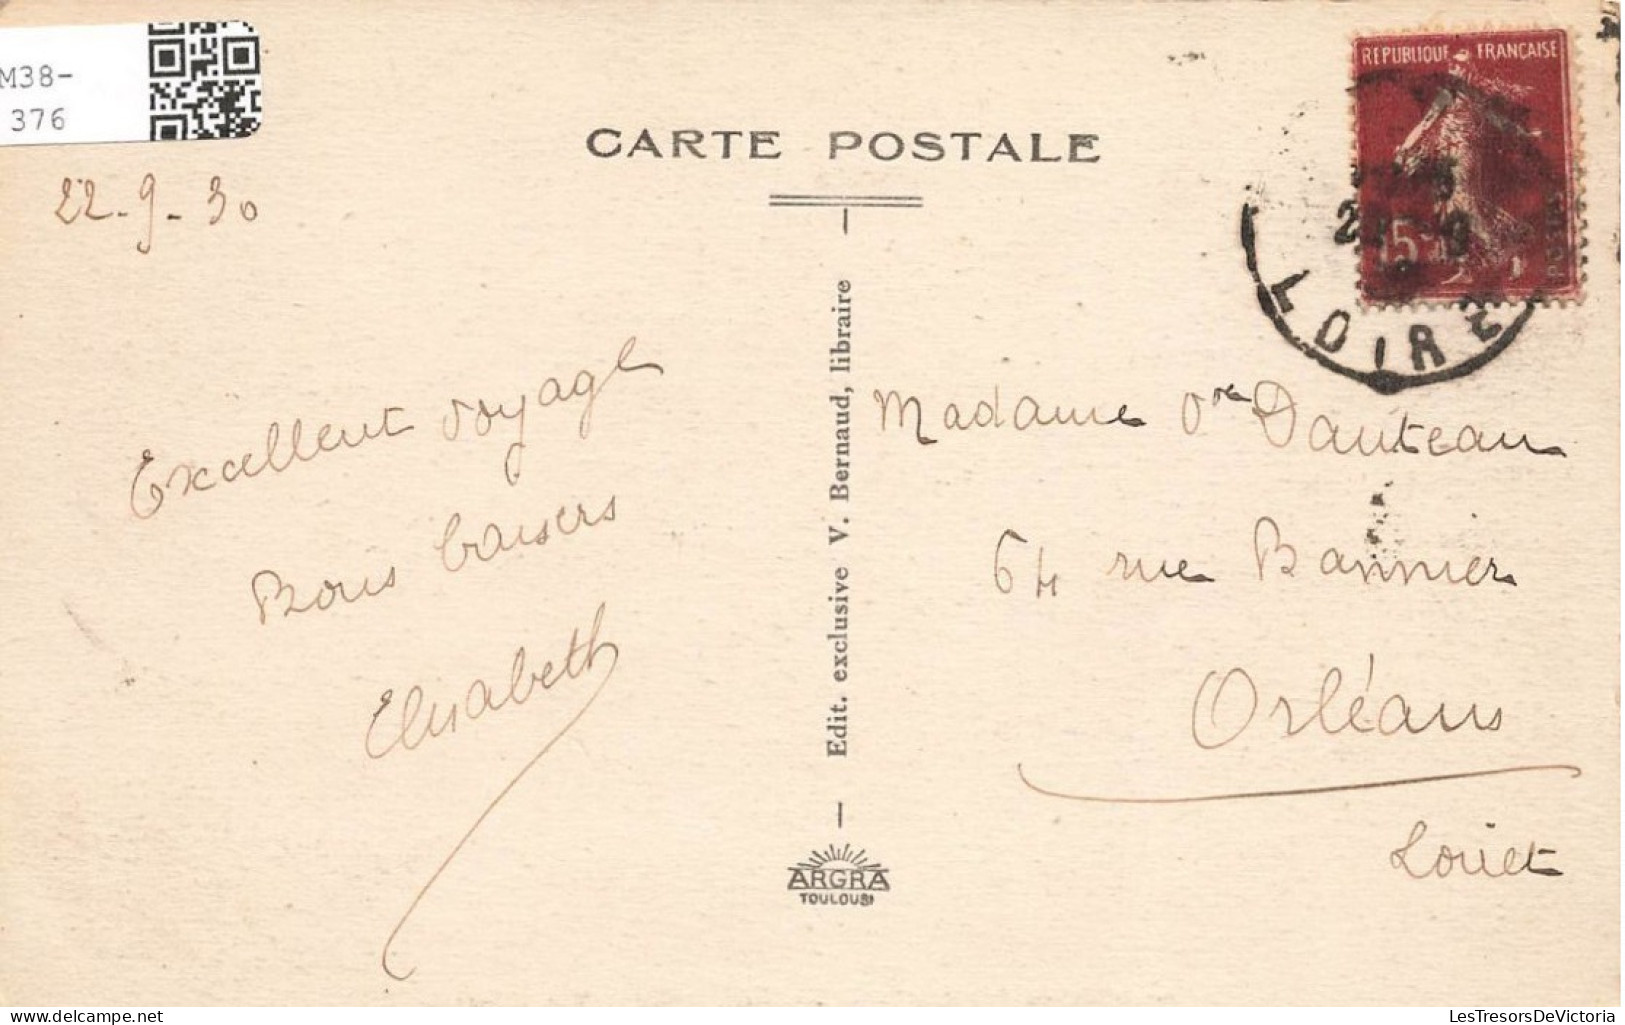 M38-
376
22-9-30
CARTE POSTALE
REPUBLIQUE FRANÇAISE
LOIRE
Excellent voyage
Bons baisers
Elisabeth
Edit. exclusive V. Bernaud, libraire
ARGRA
TOULOUSE
Madame Vve Dauteau
64 rue Bannier
Orléans
Loiret
delcampe.net
LesTresorsDeVictoria